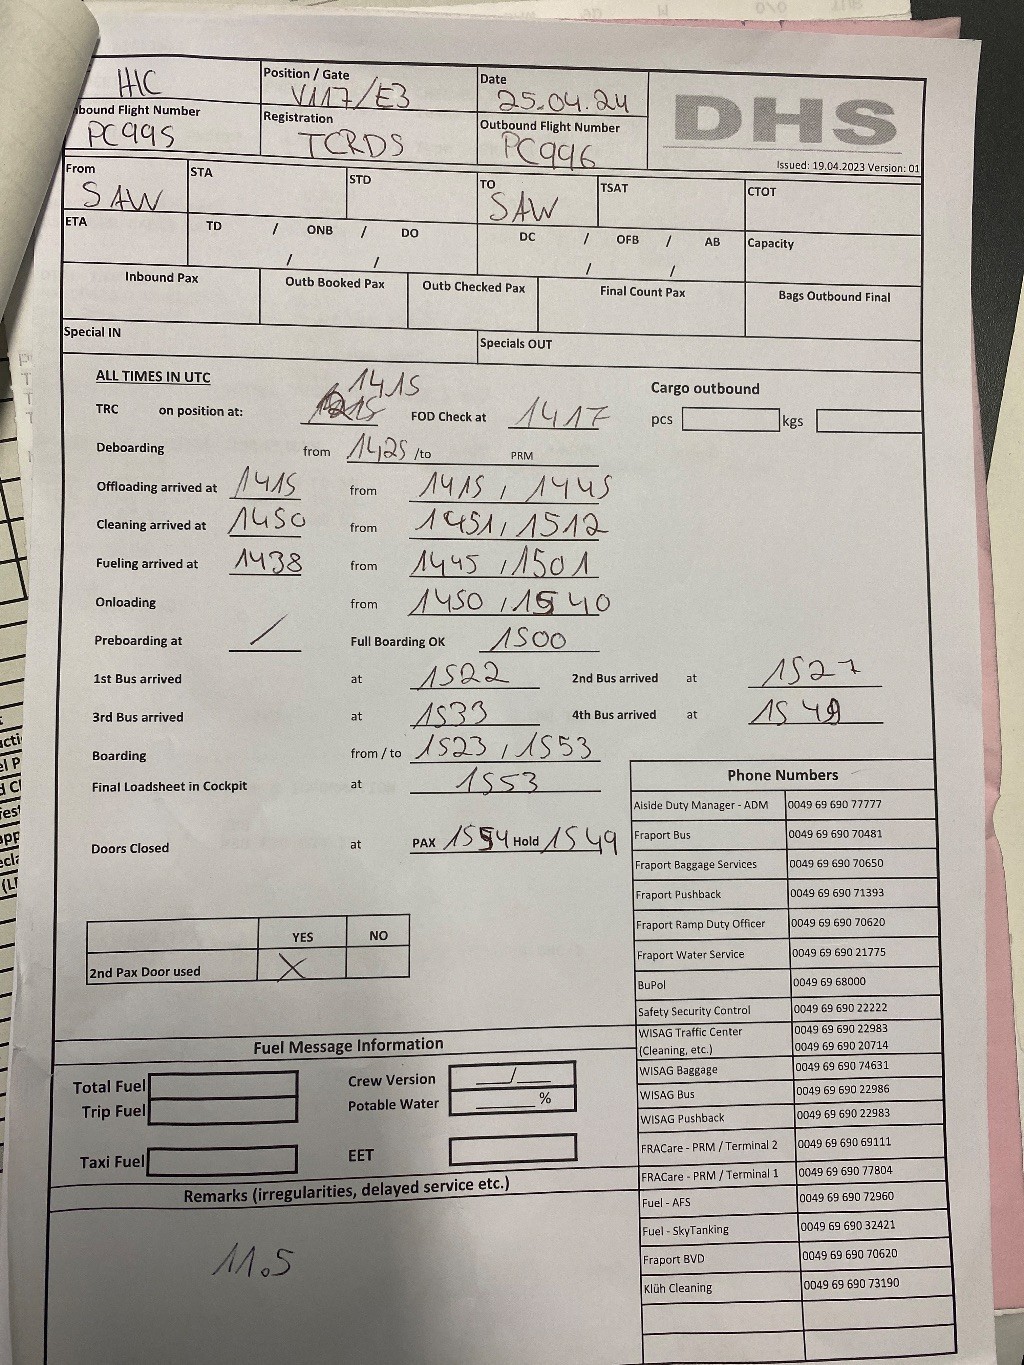 HIC
Position / Gate
V117/E3
Date
25.04.24
DHS
bound Flight Number
PC995
Registration
TCRDS
Outbound Flight Number
PC996
Issued: 19.04.2023 Version: 01
From
SAW
STA
STD
TO
SAW
TSAT
CTOT
ETA
TD / ONB / DO
/ /
DC / OFB / AB
/ /
Capacity
Inbound Pax
Outb Booked Pax
Outb Checked Pax
Final Count Pax
Bags Outbound Final
Special IN
Specials OUT
ALL TIMES IN UTC
1415
Cargo outbound
TRC on position at: 1215 FOD Check at 1417
pcs kgs
Deboarding from 1425 /to PRM
Offloading arrived at 1415 from 1415 / 1445
Cleaning arrived at 1450 from 1451 / 1512
Fueling arrived at 1438 from 1445 / 1501
Onloading from 1450 / 1540
Preboarding at / Full Boarding OK 1500
1st Bus arrived at 1522 2nd Bus arrived at 1527
3rd Bus arrived at 1533 4th Bus arrived at 1549
Boarding from / to 1523 / 1553
Final Loadsheet in Cockpit at 1553
Doors Closed at PAX 1554 Hold 1549
YES NO
2nd Pax Door used X
Phone Numbers
Aiside Duty Manager - ADM 0049 69 690 77777
Fraport Bus 0049 69 690 70481
Fraport Baggage Services 0049 69 690 70650
Fraport Pushback 0049 69 690 71393
Fraport Ramp Duty Officer 0049 69 690 70620
Fraport Water Service 0049 69 690 21775
BuPol 0049 69 68000
Safety Security Control 0049 69 690 22222
WISAG Traffic Center 0049 69 690 22983
(Cleaning, etc.) 0049 69 690 20714
WISAG Baggage 0049 69 690 74631
WISAG Bus 0049 69 690 22986
WISAG Pushback 0049 69 690 22983
FRACare - PRM / Terminal 2 0049 69 690 69111
FRACare - PRM / Terminal 1 0049 69 690 77804
Fuel - AFS 0049 69 690 72960
Fuel - SkyTanking 0049 69 690 32421
Fraport BVD 0049 69 690 70620
Klüh Cleaning 0049 69 690 73190
Fuel Message Information
Total Fuel
Crew Version /
Trip Fuel
Potable Water %
Taxi Fuel
EET
Remarks (irregularities, delayed service etc.)
11.5